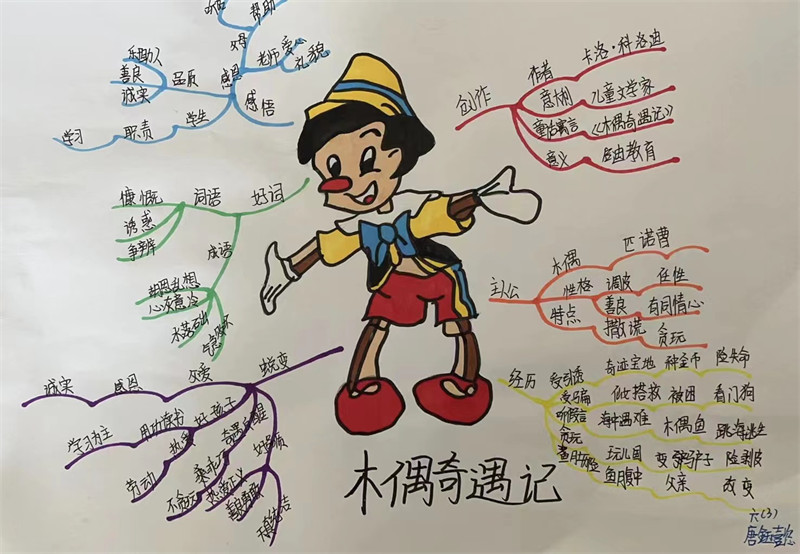 帮助
父母
老师
爱心
礼貌
感恩
感悟
品质
善良
诚实
学生
职责
学习
好词
词语
慷慨
诱惑
争辩
成语
胡思乱想
心灰意冷
蜕变
父爱
感恩
诚实
好孩子
用功读书
学习为主
热爱
劳动
创作
作者
卡洛·科洛迪
意大利
儿童文学家
童话寓言
《木偶奇遇记》
意义
教育
主人公
木偶
匹诺曹
性格
调皮
任性
特点
善良
有同情心
撒谎
贪玩
经历
受引诱
奇迹宝地
种金币
险失命
受骗
做搭救
被困
看门狗
听假言
海中遇难
木偶鱼
跳海逃生
贪玩
玩儿国
变驴子
险剥皮
鱼腹中
父亲
改变
木偶奇遇记
六(3)